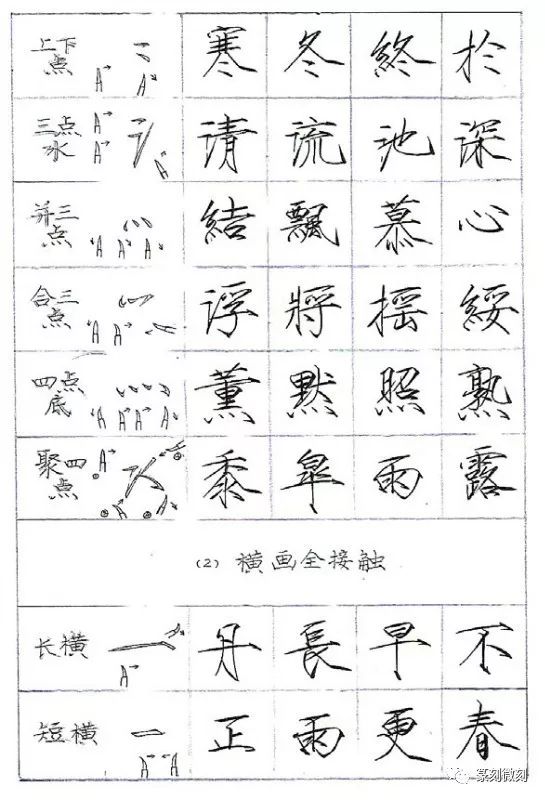 上下点 寒 冬 終 於
三点水 清 流 池 深
并三点 結 飄 慕 心
合三点 浮 將 摇 綏
四点底 薰 默 照 熟
聚四点 黍 雨 露
(2) 横画全接触
长横 丹 長 早 不
短横 正 雨 更 春
篆刻微刻